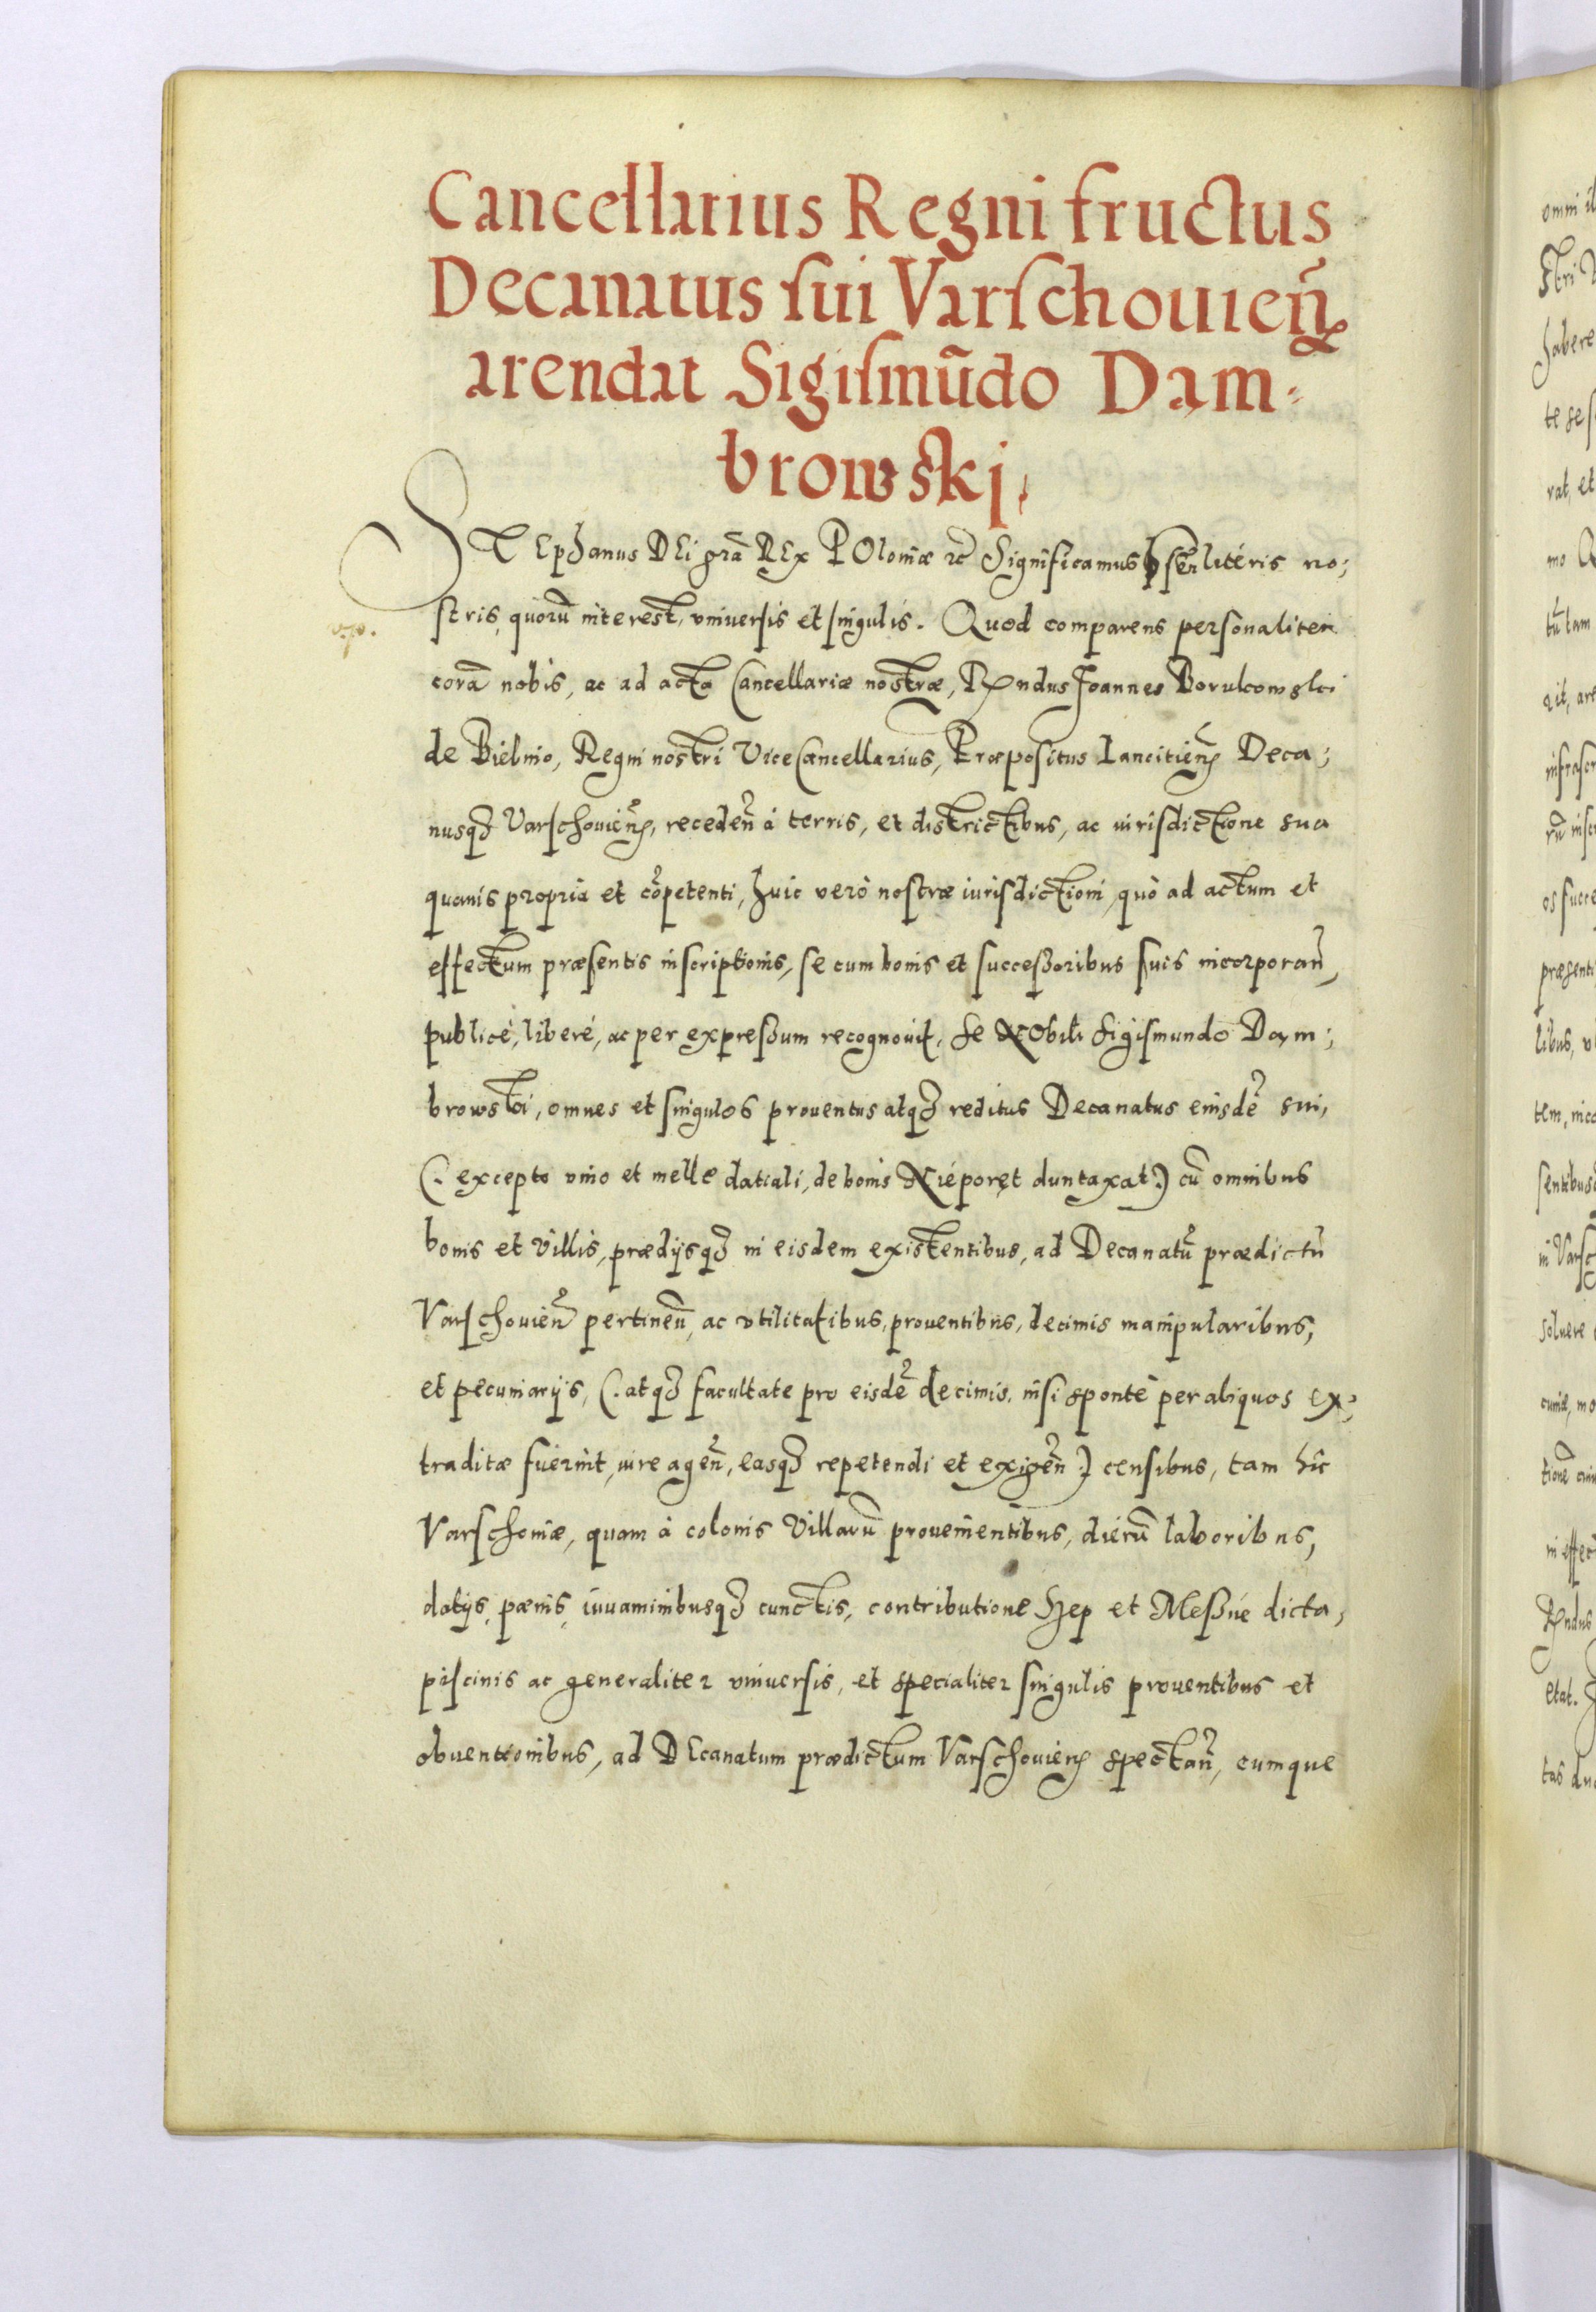 Cancellarius Regni fructus
Decanatus sui Varschouień
arendat Sigismūdo Dam-
browskj,
STEphanus DEi grā REx POloniæ zc̄ Significamus pn̄sen literis no-
stris, quorū interest, vniuersis et singulis. Quod comparens personaliter
v.p.
corā nobis, ac ad acta Cancellariæ nostræ, Rn̄dus Joannes Borukowski
de Bielino, Regni nostri ViceCancellarius, Præpositus Lancitień Deca-
nusq3 Varschouień, recedeń à terris, et districtibus, ac iurisdictione sua
quauis propria et cōpetenti, huic verò nostræ iurisdictioni, quò ad actum et
effectum præsentis inscriptionis, se cum bonis et successoribus suis incorporań,
publicè, liberè, ac per expressum recognouit, se Nobili Sigismundo Dam-
browski, omnes et singulos prouentus atq3 reditus Decanatus eiusdē sui,
(: excepto vino et melle datiali, de bonis Nieporęt duntaxat :) cū omnibus
bonis et villis, prædijsq3 in eisdem existentibus, ad Decanatū prædictū
Varschouień pertineń, ac vtilitatibus, prouentibus, decimis manipularibus,
et pecuniarijs, (: atq3 facultate pro eisdē decimis, nisi spontè per aliquos ex-
traditæ fuerint, iure ageń, easq3 repetendi et exigeń :) censibus, tam hîc
Varschouiæ, quam à colonis villarū prouenientibus, dierū laboribus,
datijs, pænis, iuuaminibusq3 cunctis, contributione Sep et Messne dicta,
piscinis ac generaliter vniuersis, et specialiter singulis prouentibus et
obuentionibus, ad DEcanatum prædictum Varschouień spectań, eumque